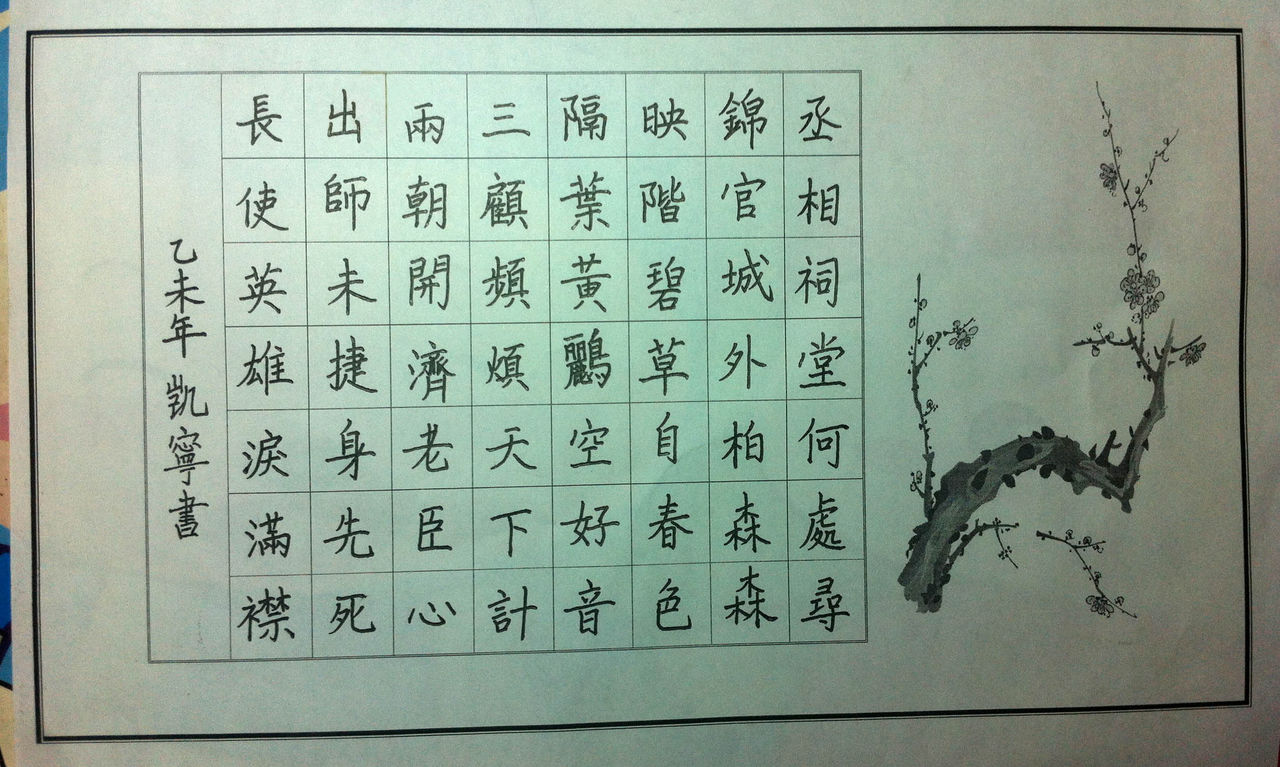 丞相祠堂何處尋
錦官城外柏森森
映階碧草自春色
隔葉黃鸝空好音
三顧頻煩天下計
兩朝開濟老臣心
出師未捷身先死
長使英雄淚滿襟
乙未年 凱寧書